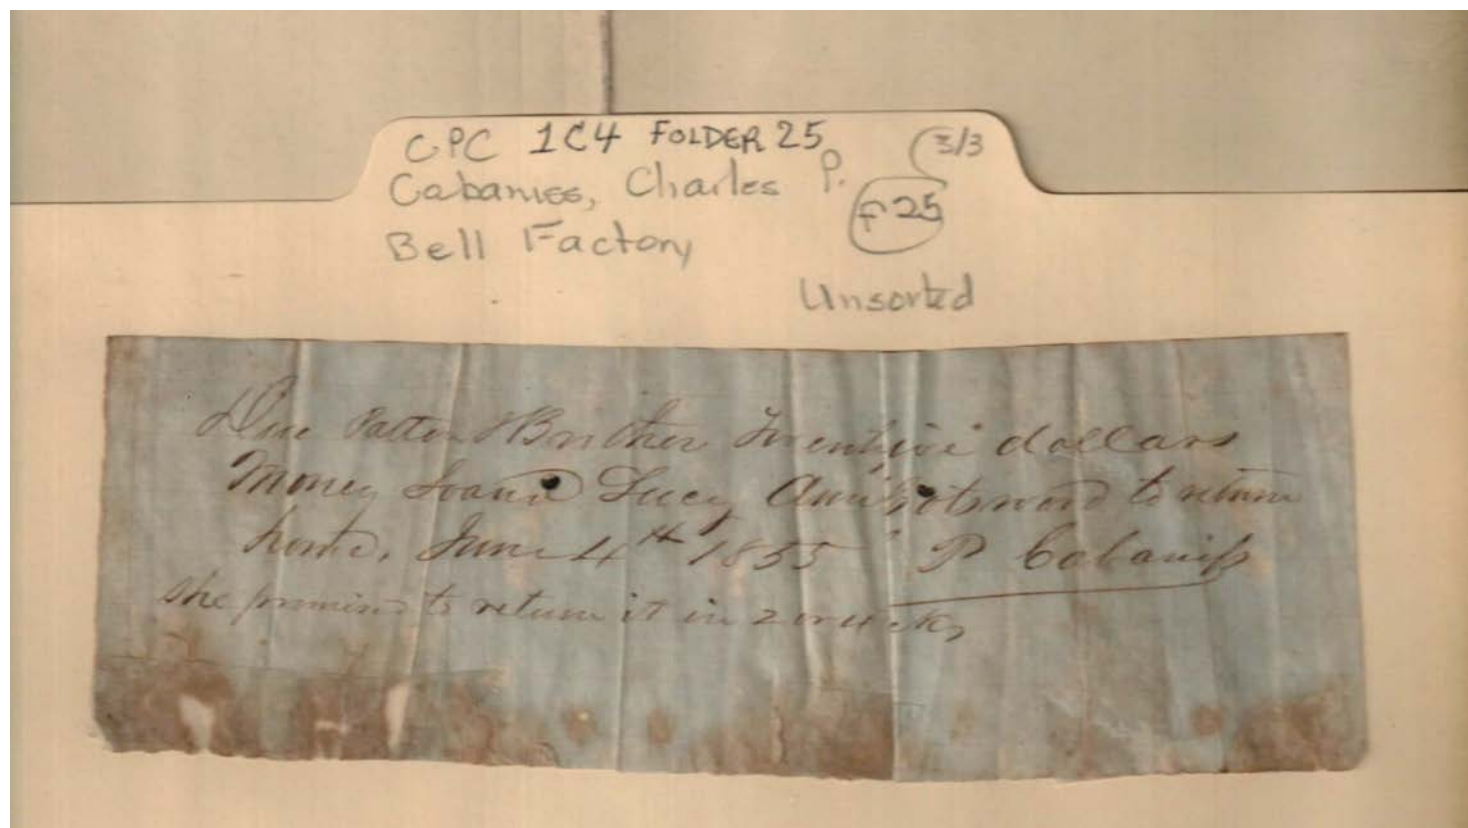 CPC 1C4 FOLDER 25
3/3
Cabaniss, Charles P.
F25
Bell Factory
Unsorted
Due Patten & Brother Twenty five dollars
Money Loaned Lucy to return
home, June 4th 1855 P Cabaniss
She promised to return it in 2 weeks